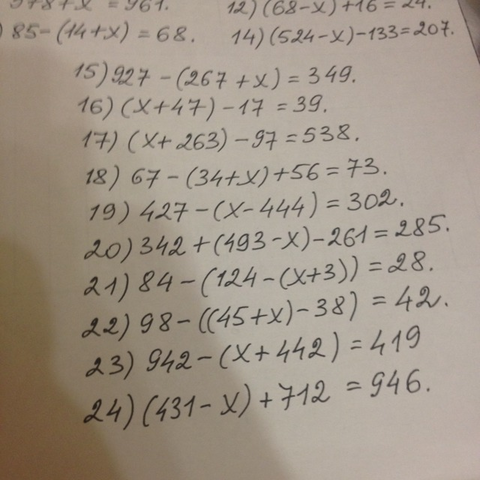 978+x = 961.
12) (68-x)+16 = 24.
) 85-(14+x) = 68.
14) (524-x)-133=207.
15) 927-(267+x) = 349.
16) (x+47)-17 = 39.
17) (x+263)-97 = 538.
18) 67-(34+x)+56 = 73.
19) 427-(x-444) = 302.
20) 342+(493-x)-261=285.
21) 84-(124-(x+3)) = 28.
22) 98-((45+x)-38) = 42.
23) 942-(x+442) = 419
24) (431-x)+712 = 946.